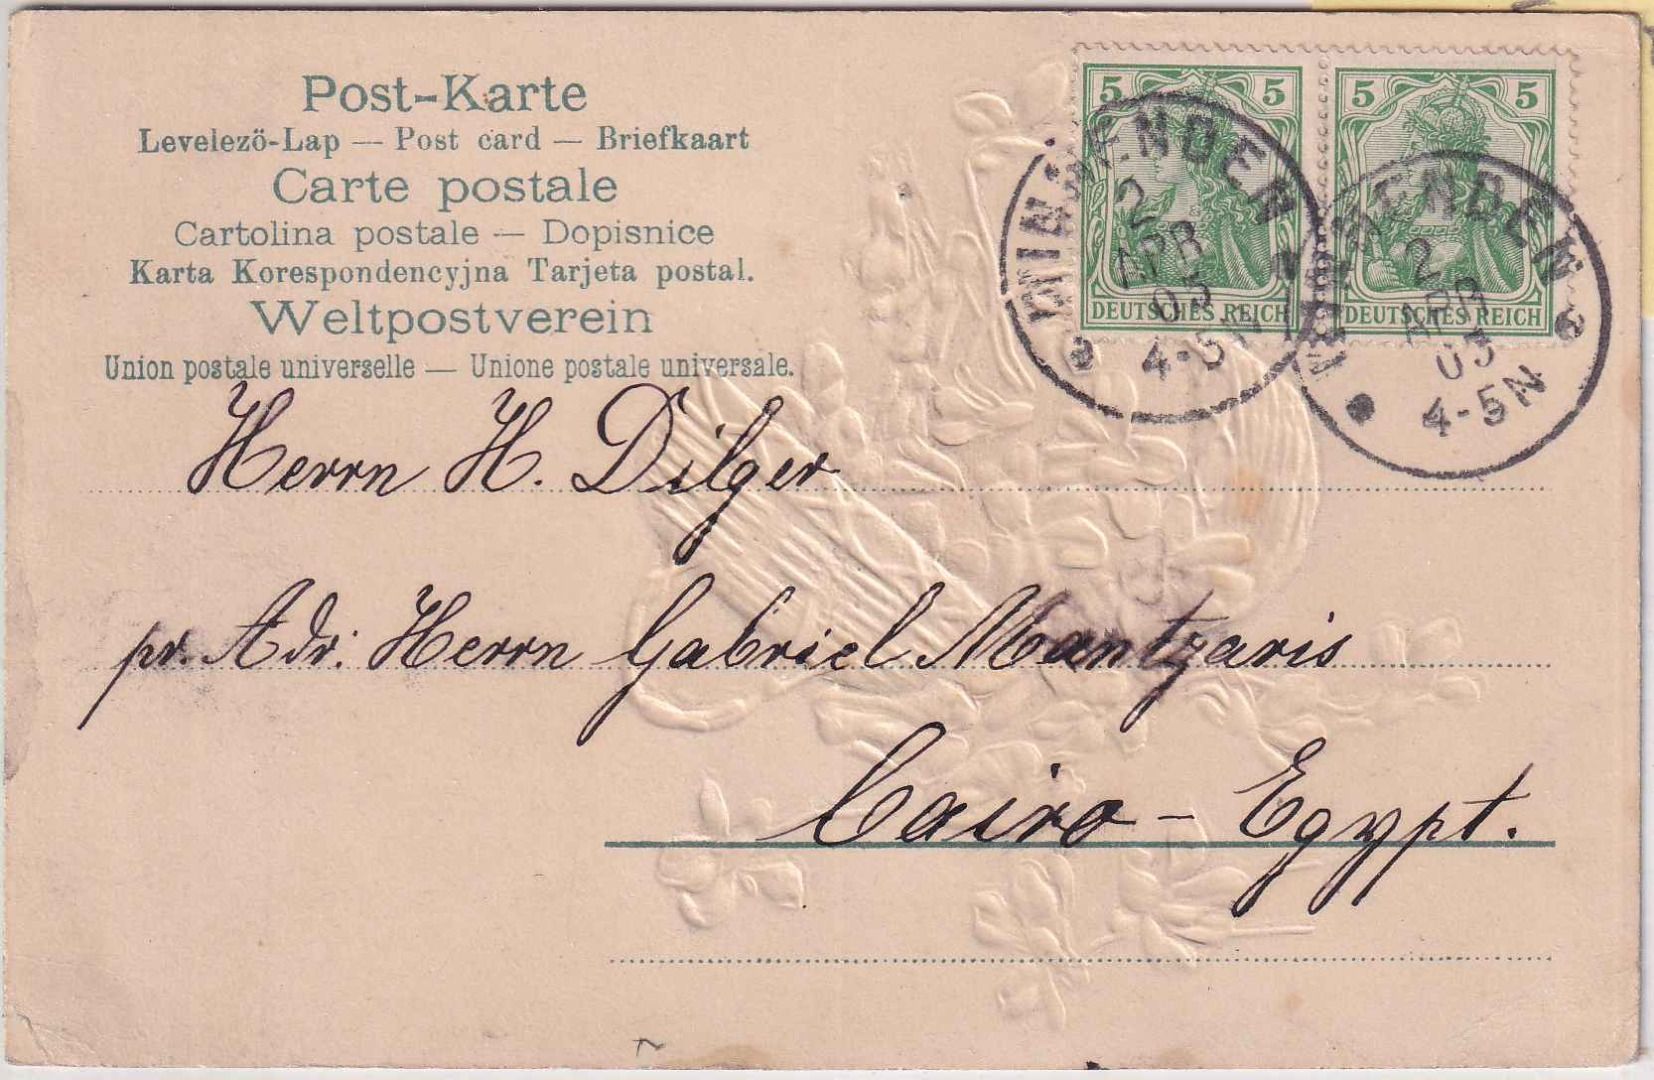 Post-Karte
Levelezö-Lap — Post card — Briefkaart
Carte postale
Cartolina postale — Dopisnice
Karta Korespondencyjna Tarjeta postal.
Weltpostverein
Union postale universelle — Unione postale universale.
5 5
DEUTSCHES REICH
5 5
DEUTSCHES REICH
2
APR
03
4-5N
2
APR
03
4-5N
Herrn H. Dilger
pr. Adr. Herrn Gabriel Mantzaris
Cairo - Egypt.